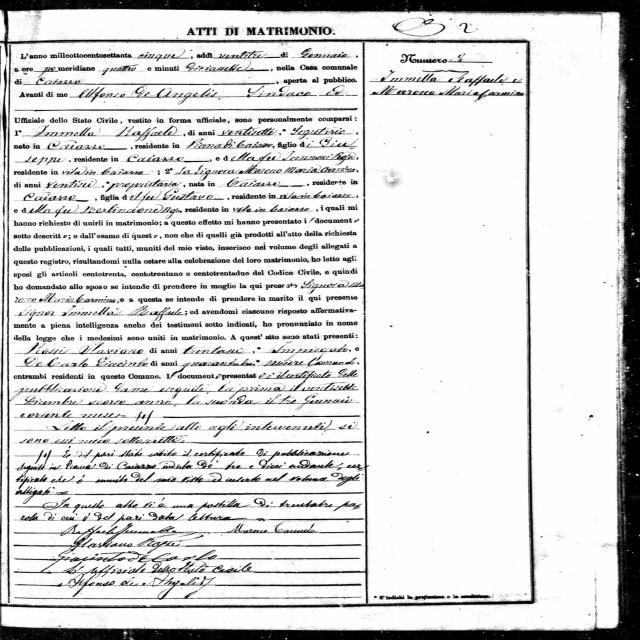 2
ATTI DI MATRIMONIO.
L'anno milleottocentosettanta cinque, addì ventitre di Gennaio,
a ore po meridiane quattro e minuti diciassette, nella Casa comunale
di Caiazzo, aperta al pubblico.
Avanti di me Alfonso De Angelis, Sindaco ed
Uffiziale dello Stato Civile, vestito in forma uffiziale, sono personalmente comparsi:
1° Immella Raffaele, di anni ventisette,
nato in Caiazzo, residente in Piana di Caiazzo, figlio di Giu
seppe, residente in Caiazzo, e di
residente in vita in Caiazzo; 2° La Signora Marocco Maria Carmina
di anni ventisei, proprietaria, nata in Caiazzo, residente in
Caiazzo, figlia di Gustavo, residente in vita in Caiazzo,
e di residente in vita in Caiazzo, i quali mi
hanno richiesto di unirli in matrimonio; a questo effetto mi hanno presentati i documenti
sotto descritti; e dall'esame di questi, non che di quelli già prodotti all'atto della richiesta
delle pubblicazioni, i quali tutti, muniti del mio visto, inserisco nel volume degli allegati a
questo registro, risultandomi nulla ostare alla celebrazione del loro matrimonio, ho letto agli
sposi gli articoli centotrenta, centotrentuno e centotrentadue del Codice Civile, e quindi
ho domandato allo sposo se intende di prendere in moglie la qui presente Signora Ma
rocco Maria Carmina, e a questa se intende di prendere in marito il qui presente
Signor Immella Raffaele; ed avendomi ciascuno risposto affermativa-
mente a piena intelligenza anche dei testimoni sotto indicati, ho pronunziato in nome
della legge che i medesimi sono uniti in matrimonio. A quest'atto sono stati presenti:
di anni trentasei, Impiegato, e
De Carlo Giacinto di anni
entrambi residenti in questo Comune. I documenti presentati è il certificato delle
pubblicazioni seguite, la prima il ventisette
Dicembre scorso anno, la seconda il tre Gennaio
corrente mese
Letto il presente atto agli intervenuti, si
sono essi meco sottoscritti
È del pari stato esibito il certificato di pubblicazione
seguito in Piana di Caiazzo in data de' tre e dieci andante, cer
tificato che è munito del mio visto ed inserto nel volume degli
allegati
In questo atto vi è una postilla di trentatre pa
role di cui è del pari data lettura
Raffaele Immella Marocco Carmela
Giacinto de Carlo
L'Uffiziale dello Stato Civile
Alfonso de Angelis
Numero 2
Immella Raffaele e
Marocco Maria Carmina
* S'indichi la professione o la condizione.